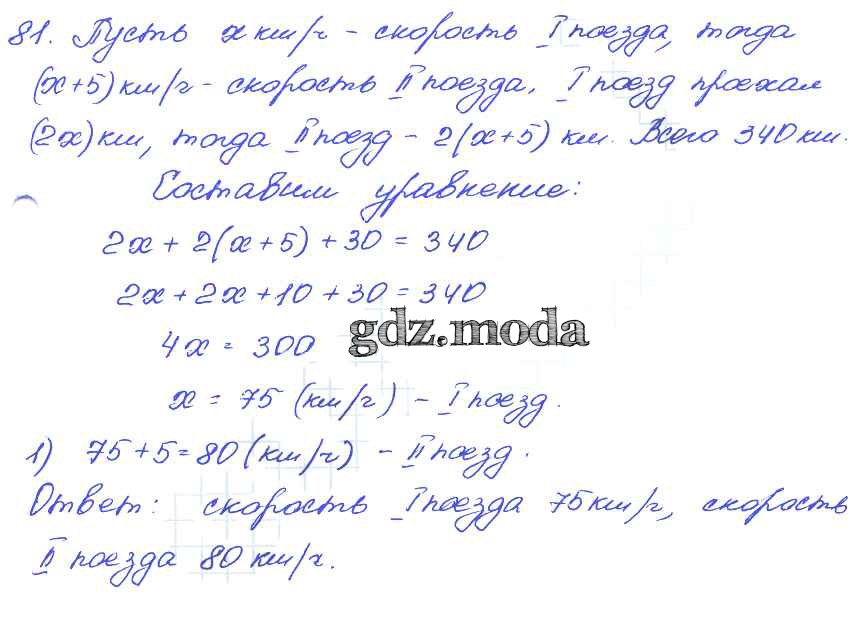 81. Пусть x км/ч - скорость I поезда, тогда
(x+5) км/ч - скорость II поезда. I поезд проехал
(2x) км, тогда II поезд - 2(x+5) км. Всего 340 км.
Составим уравнение:
2x + 2(x+5) + 30 = 340
2x + 2x + 10 + 30 = 340
4x = 300
gdz.moda
x = 75 (км/ч) - I поезд.
1) 75 + 5 = 80 (км/ч) - II поезд.
Ответ: скорость I поезда 75 км/ч, скорость
II поезда 80 км/ч.